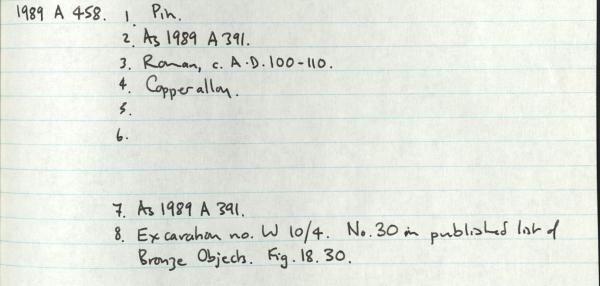 1989 A 458. 1. Pin.
2. As 1989 A 391.
3. Roman, c. A.D. 100-110.
4. Copper alloy.
5.
6.
7. As 1989 A 391.
8. Excavation no. W 10/4. No. 30 in published list of
Bronze Objects. Fig. 18. 30.